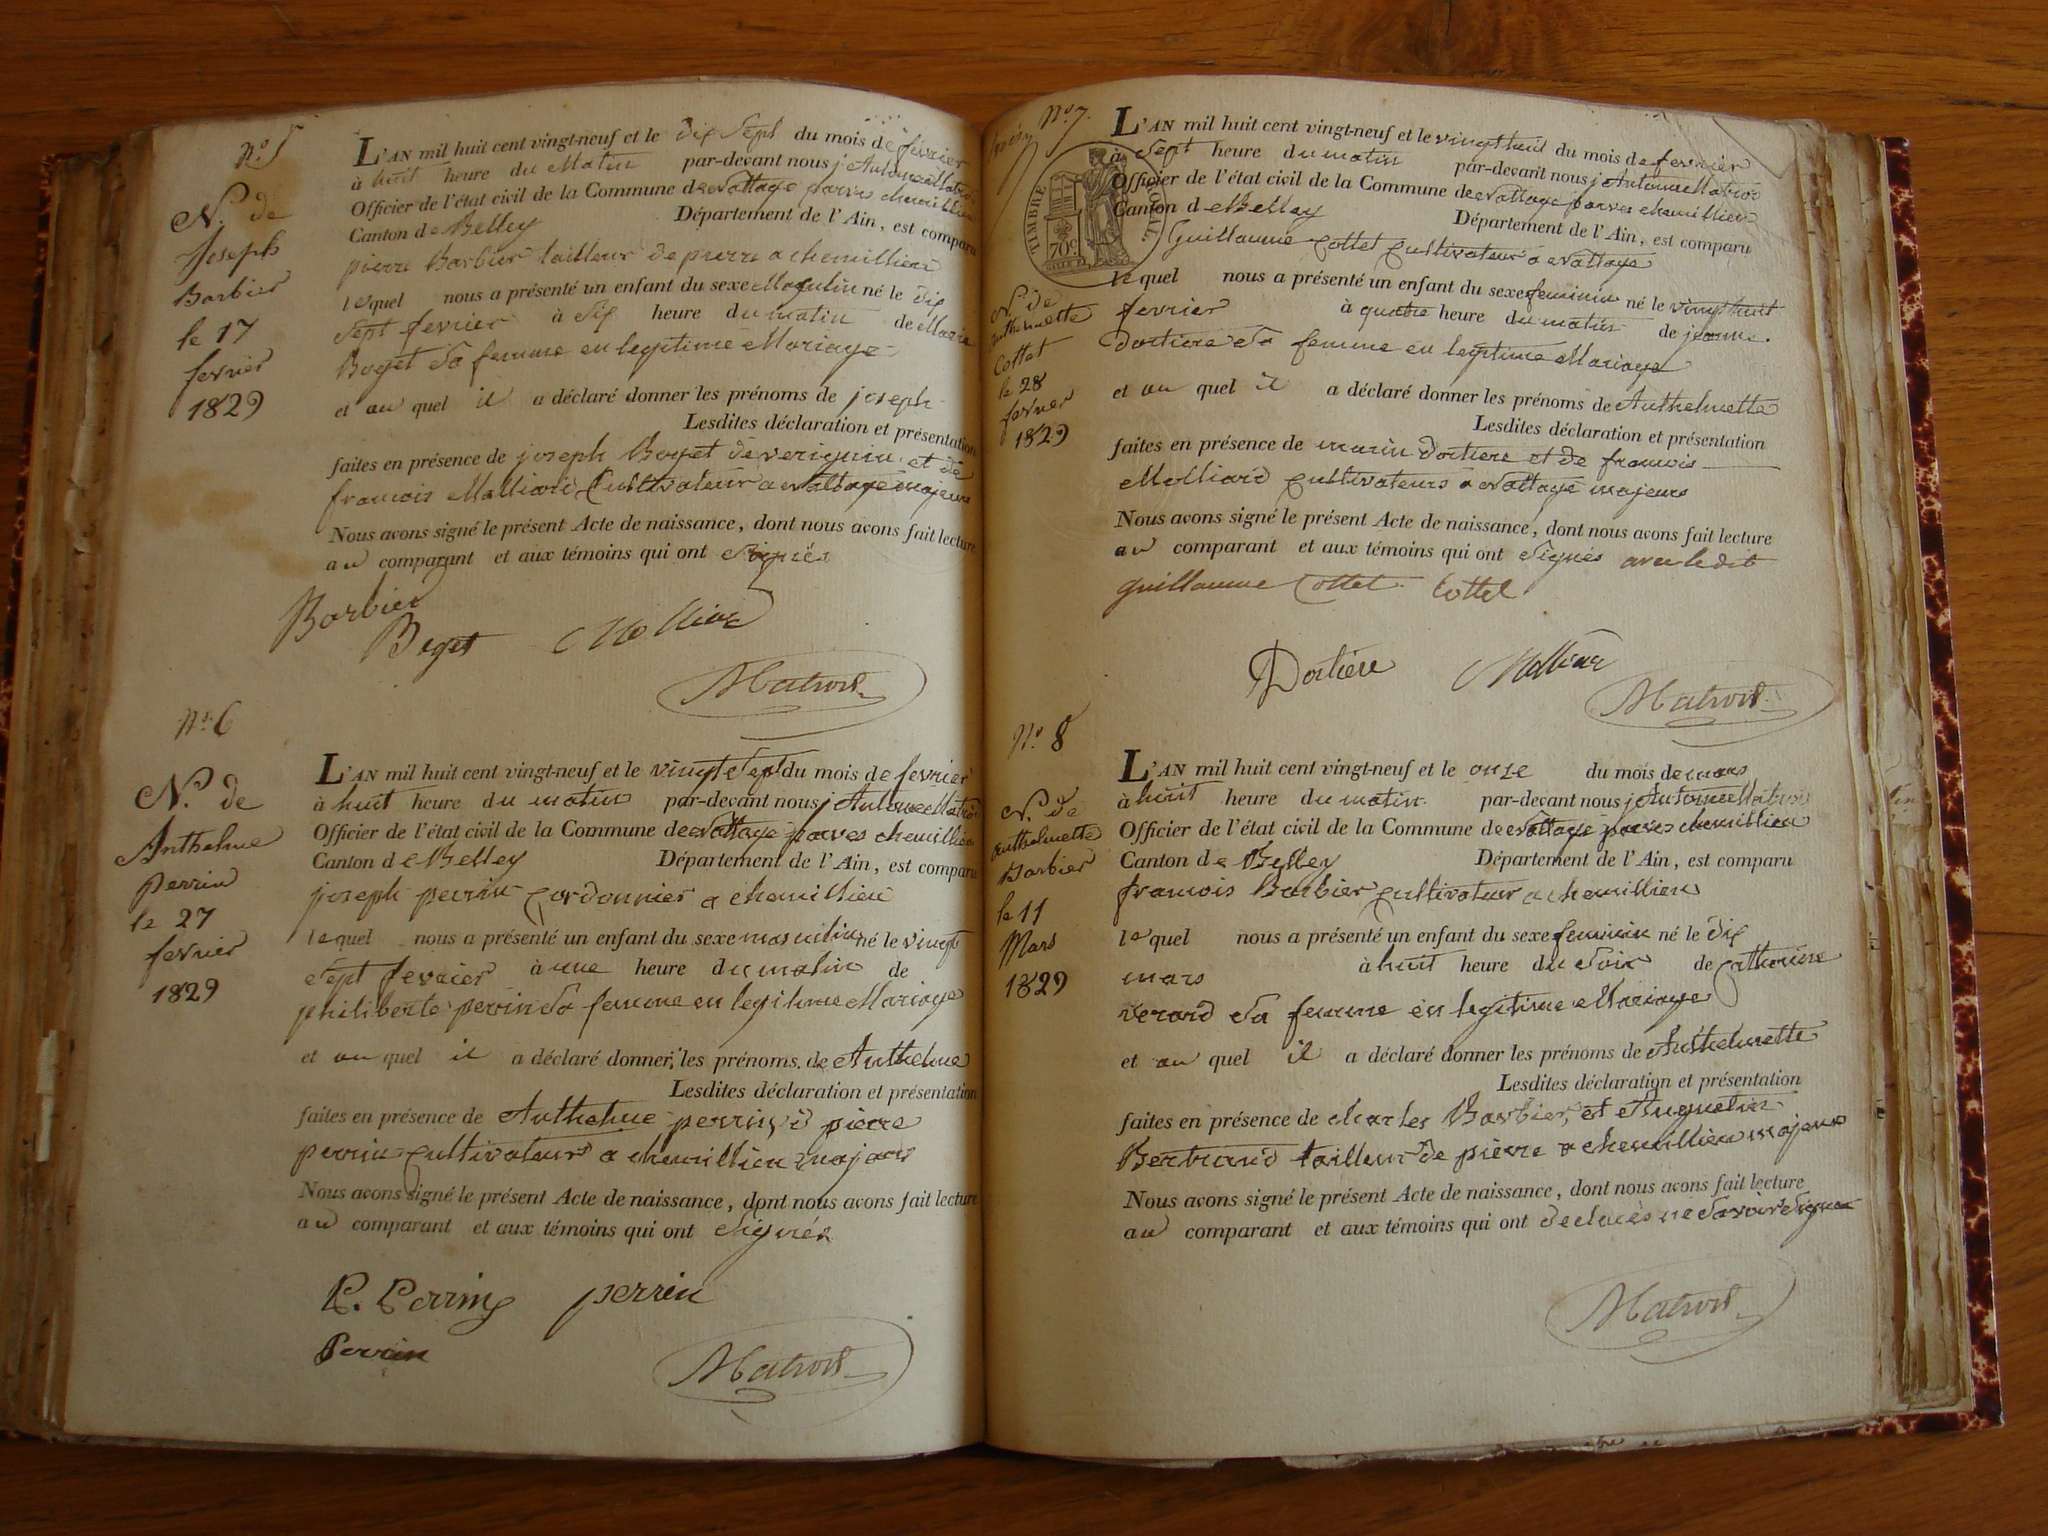 N.º 5
N. de
Joseph
Barbier
le 17
fevrier
1829
L'AN mil huit cent vingt-neuf et le dix sept du mois de fevrier
à huit heure du Matin par-devant nous j Antoine
Officier de l'état civil de la Commune de parves chemillieu
Canton de Belley Département de l'Ain, est comparu
pierre Barbier tailleur de pierre a chemillieu
lequel nous a présenté un enfant du sexe Masculin né le dix
sept fevrier à six heure du matin de Marie
Boget Sa femme en legitime Mariage
et au quel il a déclaré donner les prénoms de joseph
Lesdites déclaration et présentation
faites en présence de joseph Boget de et de
francois Molliard Cultivateur a majeurs
Nous avons signé le présent Acte de naissance, dont nous avons fait lecture
au comparant et aux témoins qui ont Signés
Barbier
Boget
N.º 6
N. de
Anthelme
Perrin
le 27
fevrier
1829
L'AN mil huit cent vingt-neuf et le vingt Sept du mois de fevrier
à huit heure du matin par-devant nous j Antoine
Officier de l'état civil de la Commune de parves chemillieu
Canton de Belley Département de l'Ain, est comparu
joseph perrin cordonnier a chemillieu
lequel nous a présenté un enfant du sexe masculin né le vingt
Sept fevrier à une heure du matin de
philiberte perrin Sa femme en legitime Mariage
et au quel il a déclaré donner les prénoms de Anthelme
Lesdites déclaration et présentation
faites en présence de Anthelme perrin, & pierre
perrin cultivateurs a chemillieu majeurs
Nous avons signé le présent Acte de naissance, dont nous avons fait lecture
au comparant et aux témoins qui ont Signés
P. Perrin perrin
Perrin
N.º 7.
TIMBRE ROYAL.
70 c.
N. de
Anthelmette
Cottet
le 28
fevrier
1829
L'AN mil huit cent vingt-neuf et le vingt huit du mois de fevrier
à Sept heure du matin par-devant nous j Antoine
Officier de l'état civil de la Commune de parves chemillieu
Canton de Belley Département de l'Ain, est comparu
Guillaume Cottet Cultivateur a
lequel nous a présenté un enfant du sexe feminin né le vingt huit
fevrier à quatre heure du matin de jeanne
dortiere Sa femme en legitime Mariage
et au quel il a déclaré donner les prénoms de Anthelmette
Lesdites déclaration et présentation
faites en présence de marin Dortiere et de francois
Molliard cultivateurs a majeurs
Nous avons signé le présent Acte de naissance, dont nous avons fait lecture
au comparant et aux témoins qui ont Signés avec le dit
guillaume Cottet Cottet
Dortiere
N.º 8
N. de
Anthelmette
Barbier
le 11
Mars
1829
L'AN mil huit cent vingt-neuf et le onze du mois de mars
à huit heure du matin par-devant nous j Antoine
Officier de l'état civil de la Commune de parves chemillieu
Canton de Belley Département de l'Ain, est comparu
francois Barbier cultivateur a chemillieu
lequel nous a présenté un enfant du sexe feminin né le dix
mars à huit heure du Soir de Catherine
verard Sa femme en legitime Mariage
et au quel il a déclaré donner les prénoms de Anthelmette
Lesdites déclaration et présentation
faites en présence de charles Barbier, et
Bertrand tailleur de pierre a chemillieu majeurs
Nous avons signé le présent Acte de naissance, dont nous avons fait lecture
au comparant et aux témoins qui ont declarés ne Savoir Signer